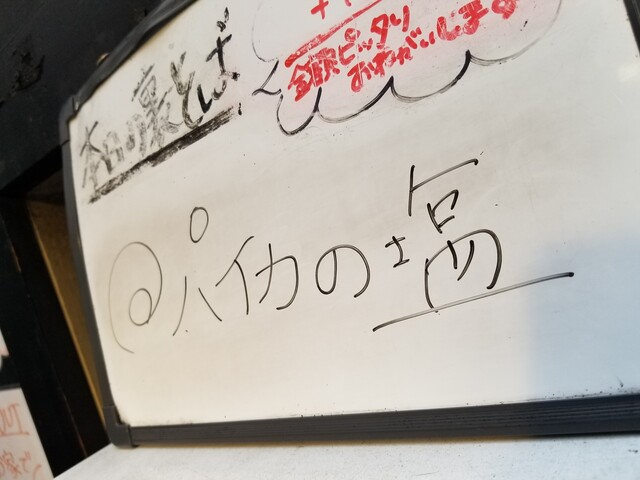 本日の裏そば
金額ピッタリ
おねがいします
@パイカの塩